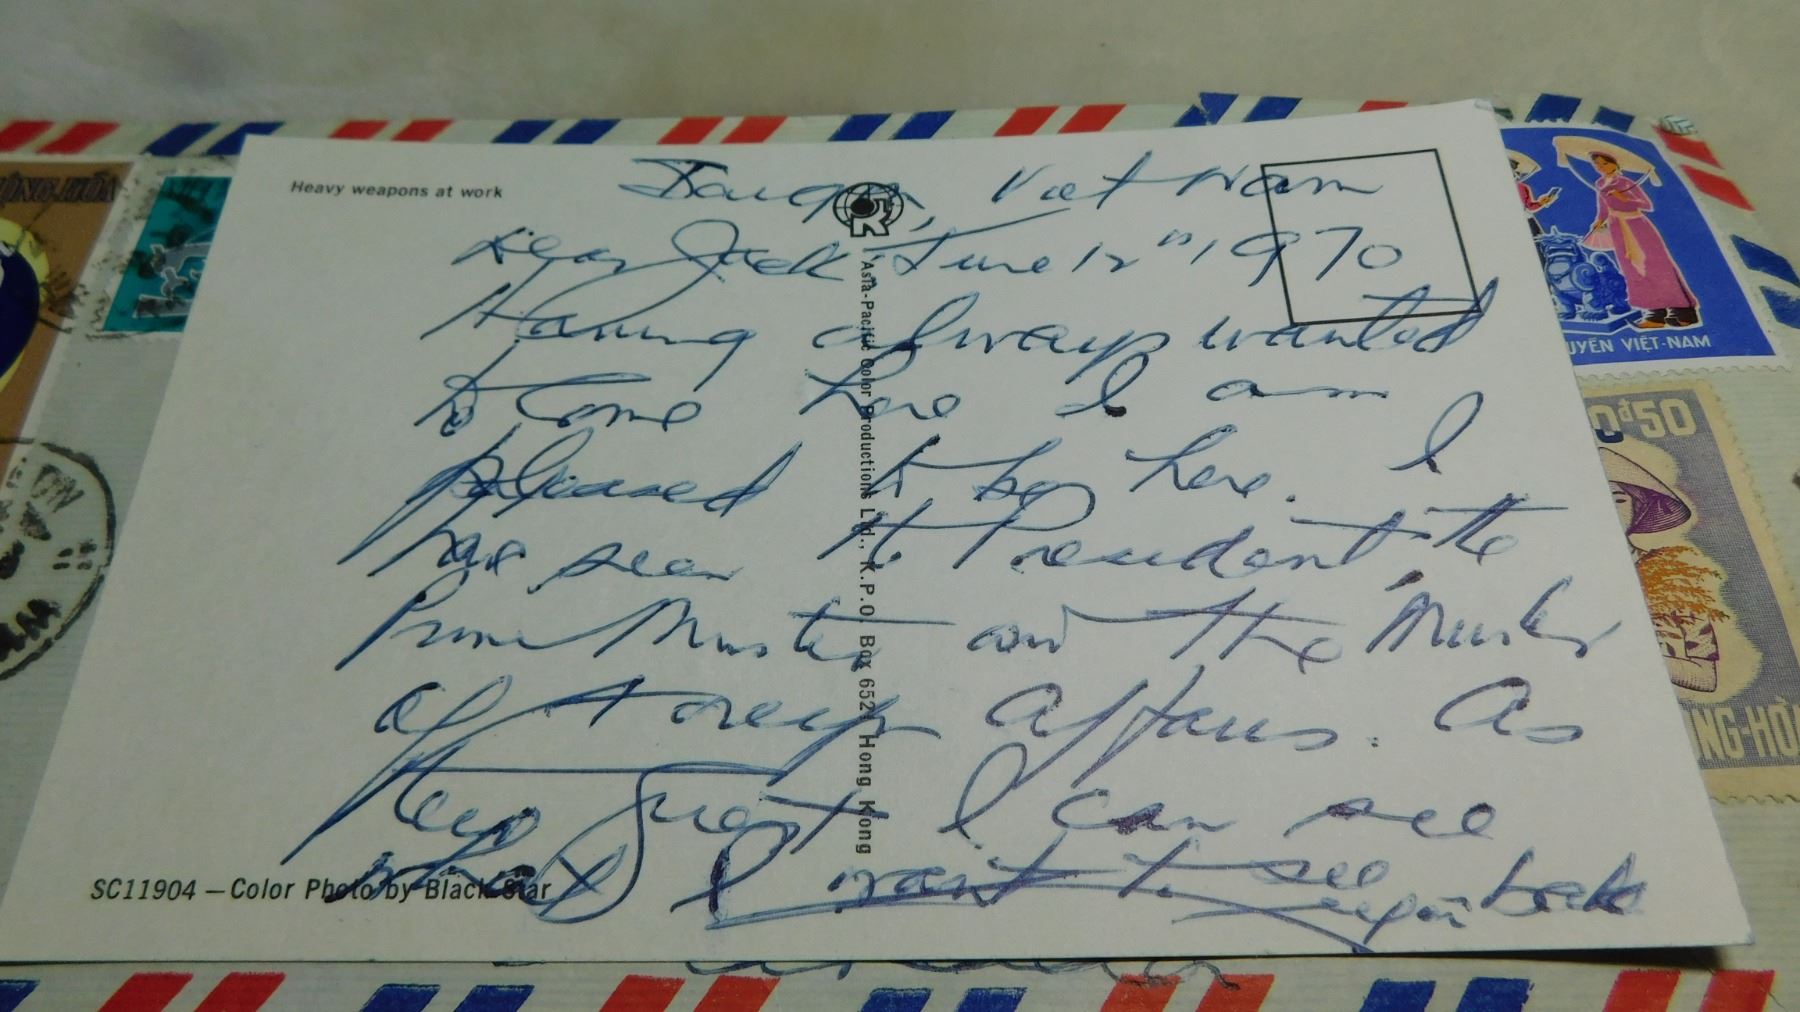 Heavy weapons at work
Saigon, Viet Nam
Dear Jack June 12th, 1970
Having always wanted
to come here I am
pleased to be here. I
have seen the President, the
Prime Minister and the Minister
of Foreign Affairs. As
their guest I can see
what I want to see
Asia-Pacific Color Productions Ltd., K.P.O. Box 6521 Hong Kong
SC11904 — Color Photo by Black Star
UYÊN VIỆT-NAM
0đ50